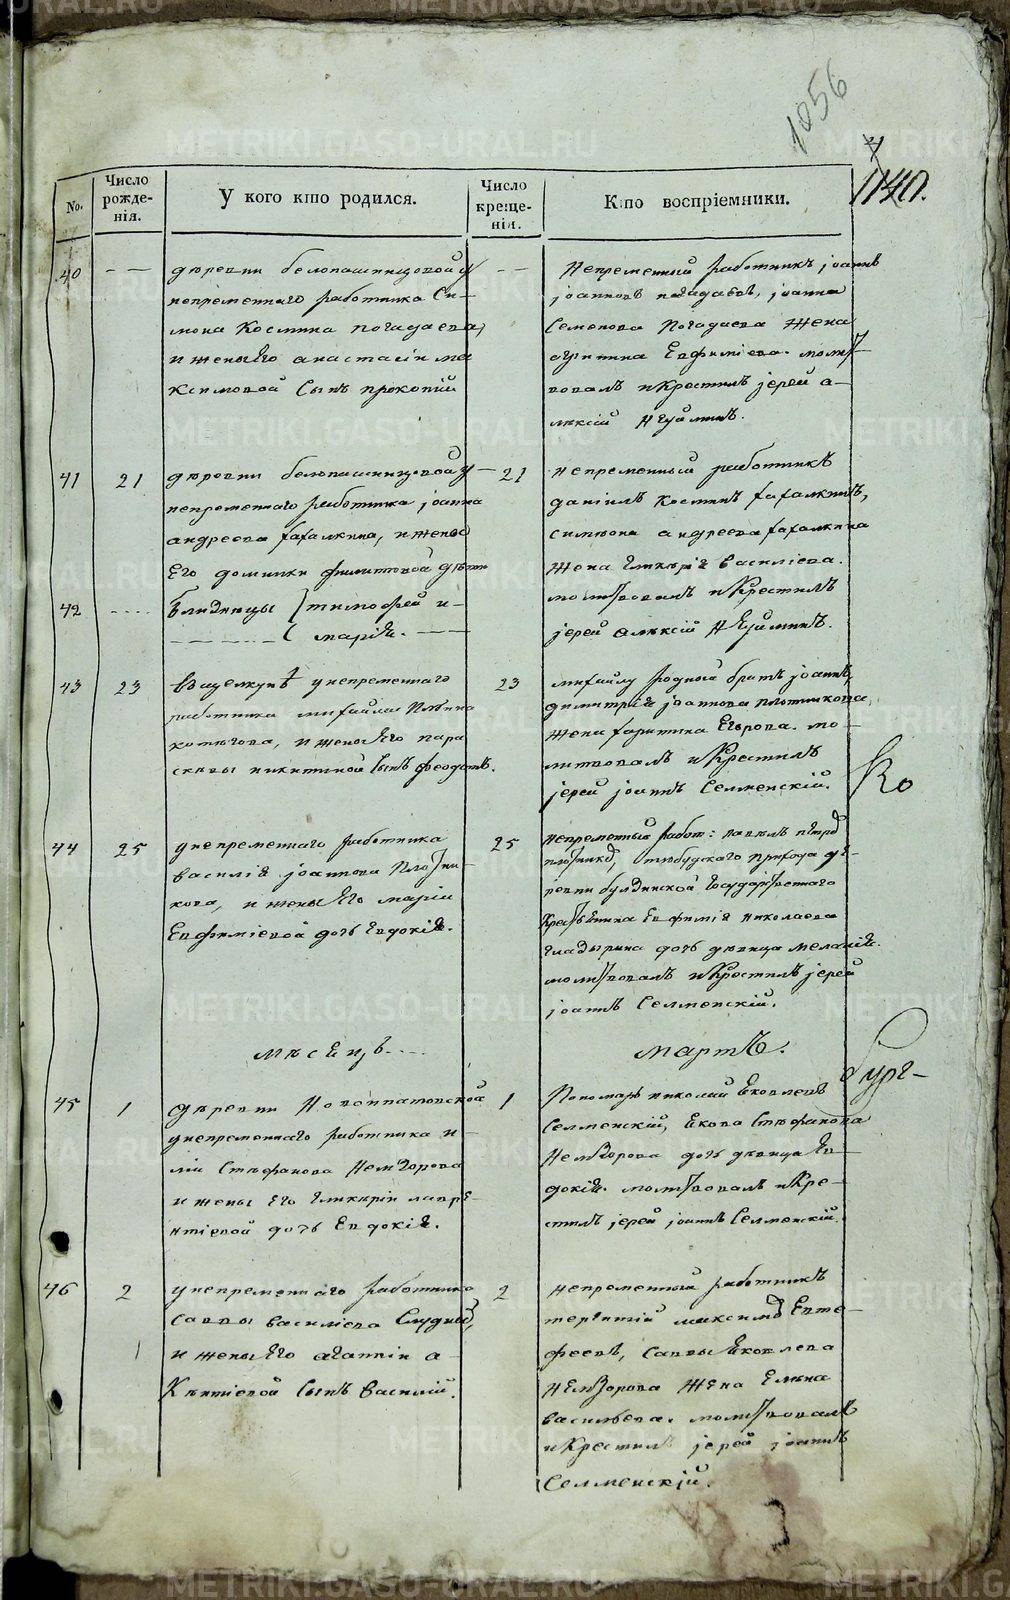 1056
1140.
No.
Число рожде-нія.
У кого кто родился.
Число креще-нія.
Кто воспріемники.
40
деревни белопашинцовой у
непременнаго работника Си-
мона Космина погадаева,
и жены Его анастасіи ма
ксимовой Сынъ прокопій
Непременный работникъ іоаннъ
іоанновъ погадаевъ, іоанна
Семенова Погадаева жена
Евфиміева. молит
вовалъ и Крестилъ іерей а-
лексій
41
21
деревни белопашинцовой у
непременнаго работника іоанна
андреева и жены
Его домники филиповой дети
21
непременный работникъ
даніилъ Косминъ
симеона андреева
жена гликерія василіева.
42
близнецы тимофей и
марія.
молитвовалъ и Крестилъ
іерей алексій
43
23
въ щелкунѣ у непременнаго
работника михайла
и жены Его пара
скевы никитиной Сынъ феодотъ.
23
михайлу родный братъ іоаннъ,
димитрія іоаннова плотникова
жена харитина Егорова. мо-
литвовалъ и Крестилъ
іерей іоаннъ Селменскій.
44
25
у непременнаго работника
василія іоаннова Плотни-
кова, и жены Его маріи
Евфиміевой дочь Евдокія.
25
непременный работ: павелъ
прихода де-
ревни булзинской государственнаго
Крестьянина Евфимія николаева
гладырина дочь девица меланія.
молитвовалъ и Крестилъ іерей
іоаннъ Селменскій.
мѣсецъ....
мартъ.
45
1
деревни Новоипатовской
у непременнаго работника и-
ліи Стефанова Немзорова
и жены Его гликеріи лавре-
нтіевой дочь Евдокія.
1
Пономарь николай Яковлевъ
Селменскій, Якова Стефанова
Немзорова дочь девица Ев-
докія. молитвовалъ и Кре-
стилъ іерей іоаннъ Селменскій.
46
2
у непременнаго работника
саввы василіева
и жены Его агапіи а-
Сынъ василій.
2
непременный работникъ
терентій максимовъ Евте-
феевъ, Саввы Яковлева
Немзорова жена Елена
васильева. молитвовалъ
и Крестилъ іерей іоаннъ
Селменскій.
METRIKI.GASO-URAL.RU